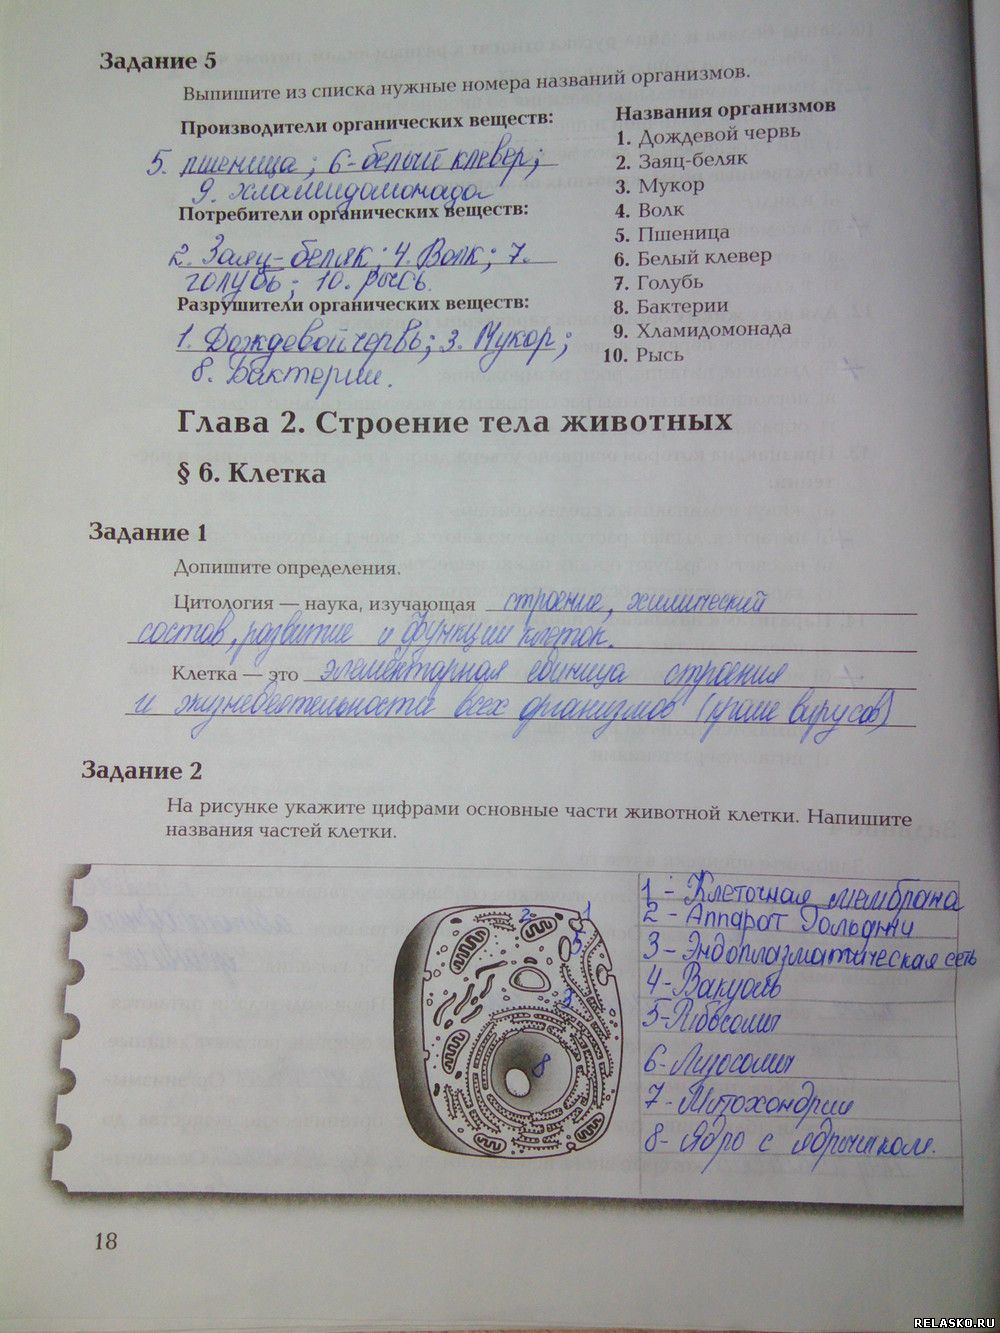 Задание 5
Выпишите из списка нужные номера названий организмов.
Производители органических веществ:
5. пшеница; 6-белый клевер;
9. хламидомонада
Потребители органических веществ:
2. Заяц-беляк; 4. Волк; 7.
голубь; 10. рысь.
Разрушители органических веществ:
1. Дождевой червь; 3. Мукор;
8. Бактерии.
Названия организмов
1. Дождевой червь
2. Заяц-беляк
3. Мукор
4. Волк
5. Пшеница
6. Белый клевер
7. Голубь
8. Бактерии
9. Хламидомонада
10. Рысь
Глава 2. Строение тела животных
§ 6. Клетка
Задание 1
Допишите определения.
Цитология — наука, изучающая строение, химический
состав, развитие и функции клеток.
Клетка — это элементарная единица строения
и жизнедеятельности всех организмов (кроме вирусов)
Задание 2
На рисунке укажите цифрами основные части животной клетки. Напишите
названия частей клетки.
2 1
5
3
8
1 - Клеточная мембрана
2 - Аппарат Гольджи
3 - Эндоплазматическая сеть
4 - Вакуоль
5 - Рибосомы
6 - Лизосомы
7 - Митохондрии
8 - Ядро с ядрышком.
18
RELASKO.RU